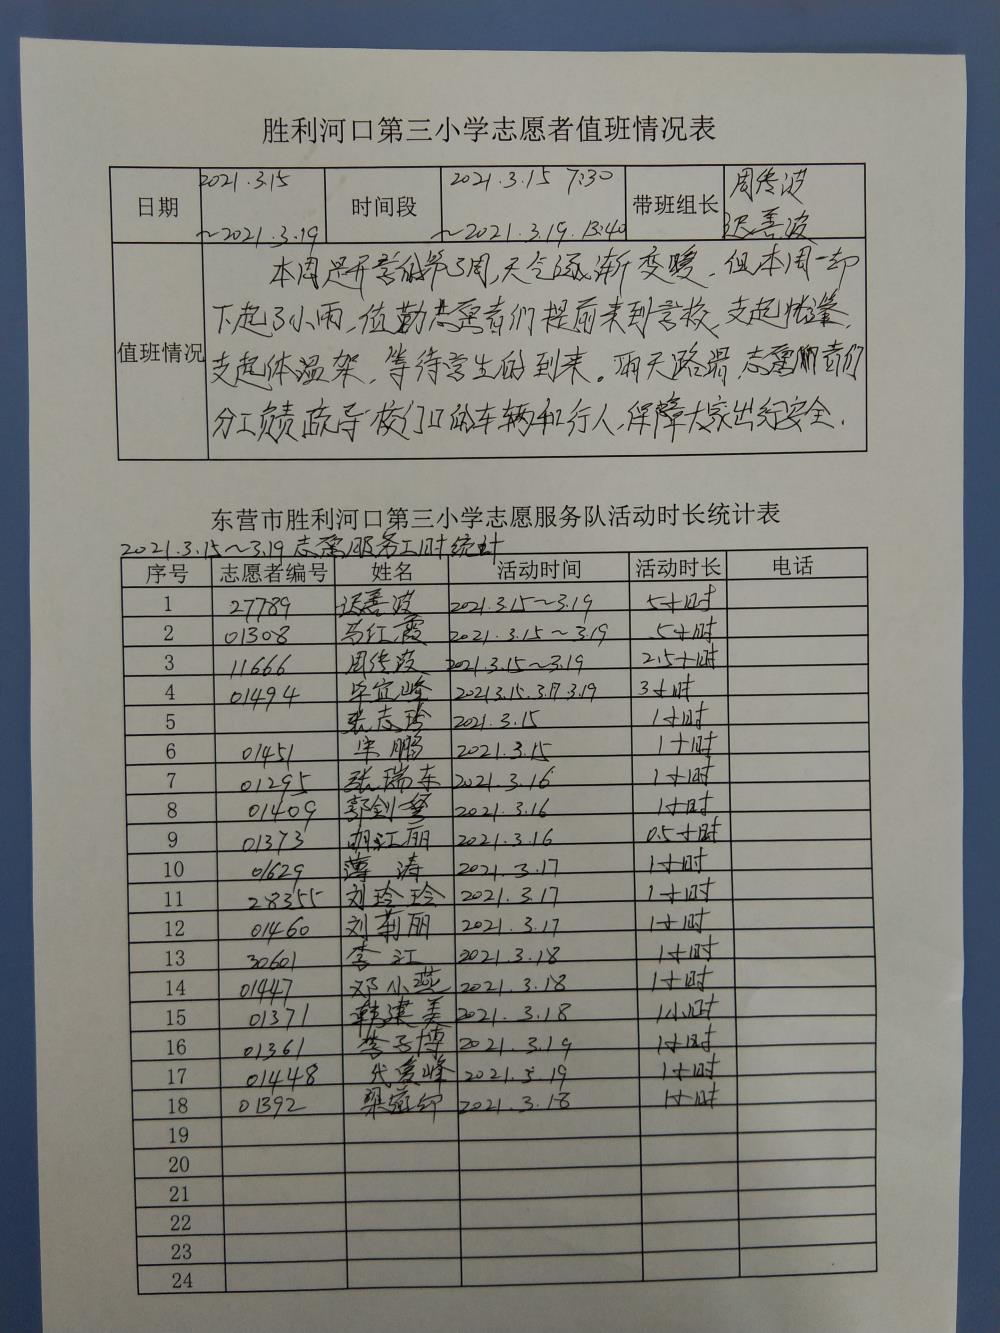 胜利河口第三小学志愿者值班情况表
日期 2021.3.15 ~2021.3.19 时间段 2021.3.15 7:30 ~2021.3.19.13:40 带班组长 周传波 迟善波
值班情况
本周是开学的第3周,天气逐渐变暖,但本周一却
下起了小雨,值勤志愿者们提前来到学校,支起帐篷,
支起体温架,等待学生的到来。雨天路滑,志愿服者们
分工负责疏导校门口的车辆和行人,保障大家出行安全.
东营市胜利河口第三小学志愿服务队活动时长统计表
2021.3.15~3.19志愿服务工时统计
序号 志愿者编号 姓名 活动时间 活动时长 电话
1 27789 迟善波 2021.3.15~3.19 5小时
2 01308 马红霞 2021.3.15~3.19 5小时
3 11666 周传波 2021.3.15~3.19 2.5小时
4 01494 毕宜峰 2021.3.15.3.17.3.19 3小时
5 张志玲 2021.3.15 1小时
6 01451 宋鹏 2021.3.15 1小时
7 01295 张瑞东 2021.3.16 1小时
8 01409 郭剑 2021.3.16 1小时
9 01373 胡江丽 2021.3.16 0.5小时
10 01629 薄涛 2021.3.17 1小时
11 28355 刘玲玲 2021.3.17 1小时
12 01460 刘菊丽 2021.3.17 1小时
13 30601 李江 2021.3.18 1小时
14 01447 邓小燕 2021.3.18 1小时
15 01371 韩建美 2021.3.18 1小时
16 01361 李子博 2021.3.19 1小时
17 01448 代爱峰 2021.3.19 1小时
18 01392 梁 2021.3.18 1小时
19
20
21
22
23
24